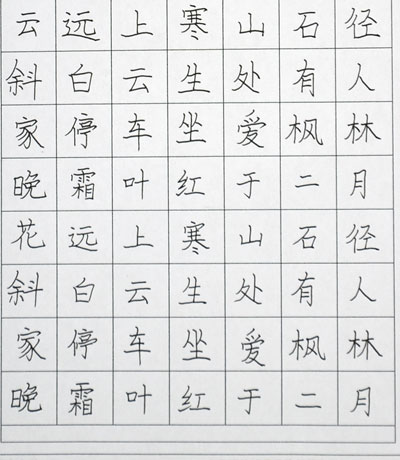 云远上寒山石径
斜白云生处有人
家停车坐爱枫林
晚霜叶红于二月
花远上寒山石径
斜白云生处有人
家停车坐爱枫林
晚霜叶红于二月